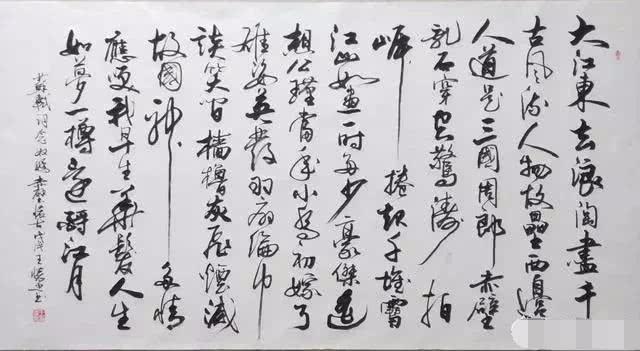 大江東去浪淘盡千
古風流人物故壘西邊
人道是三國周郎赤壁
亂石穿空驚濤拍
岸捲起千堆雪
江山如畫一時多少豪傑遙
想公瑾當年小喬初嫁了
雄姿英發羽扇綸巾
談笑間檣櫓灰飛煙滅
故國神多情
應笑我早生華髮人生
如夢一樽還酹江月
蘇軾詞念奴嬌赤壁懷古王書